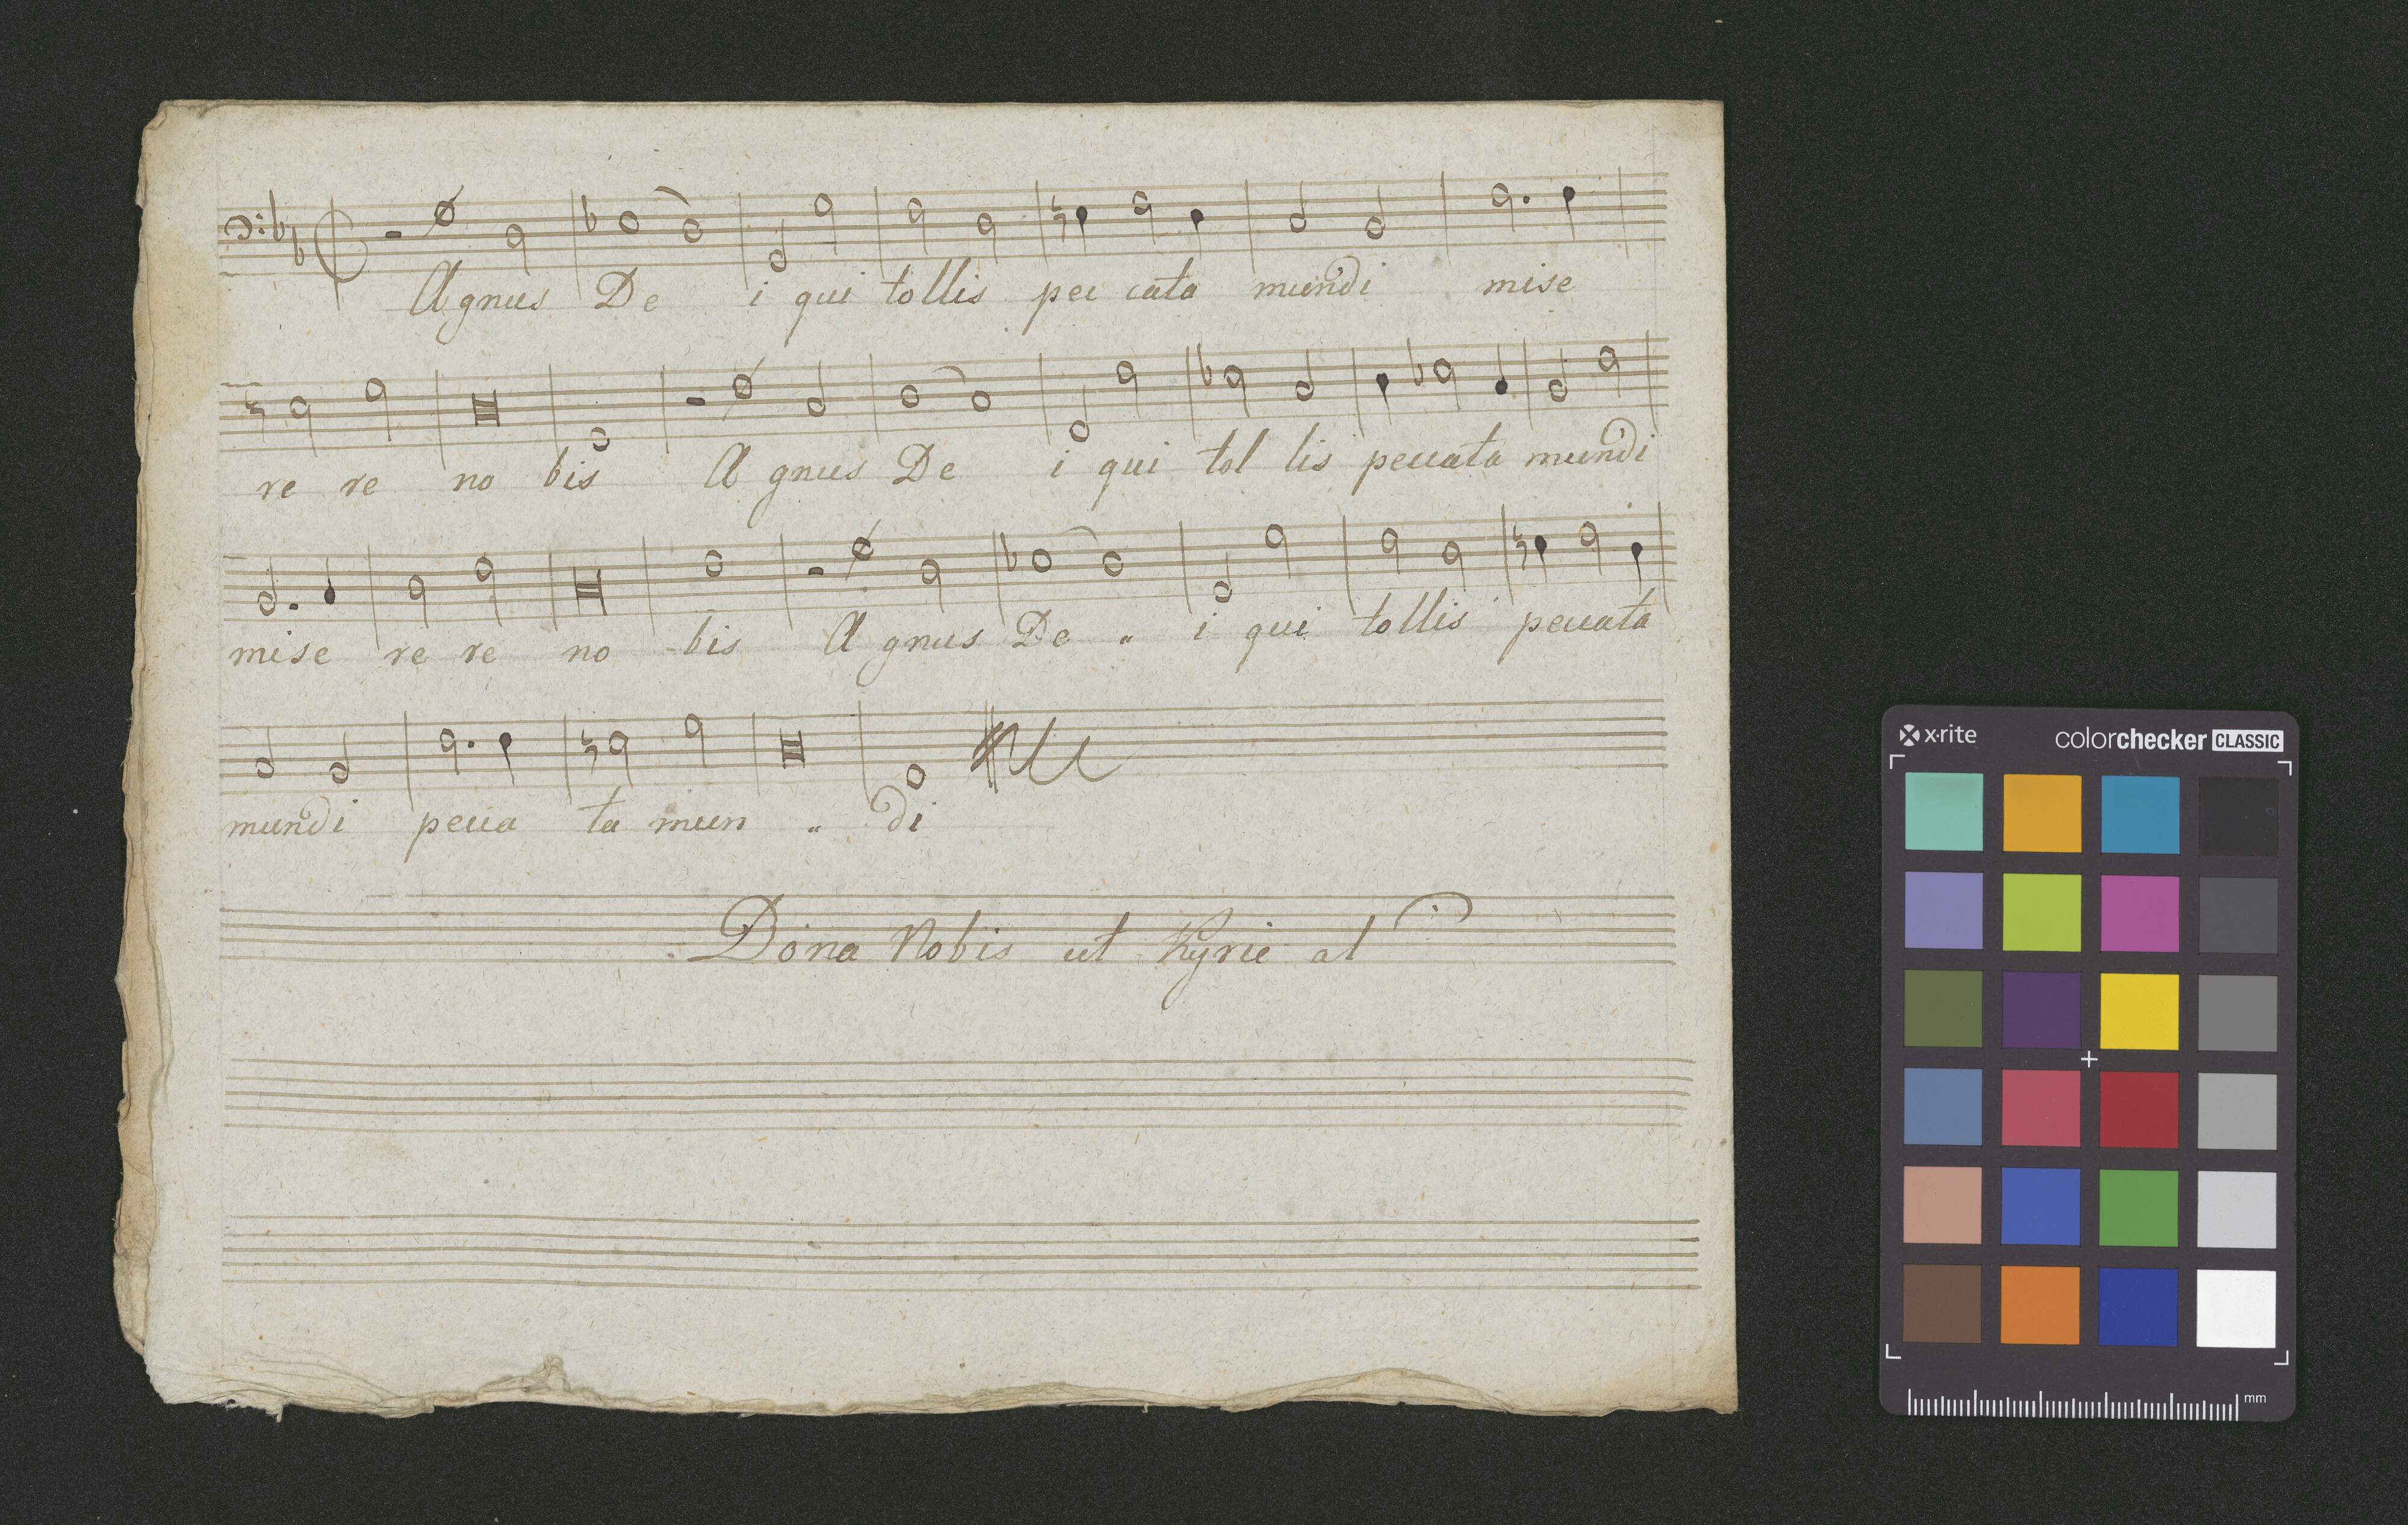 Agnus De i qui tollis pec cata mundi mise
re re no bis A gnus De i qui tol lis peccata mundi
mise re re no bis A gnus De " i qui tollis peccata
mundi pecca ta mun " di
Dona Nobis ut Kyrie al
x·rite colorchecker CLASSIC
mm